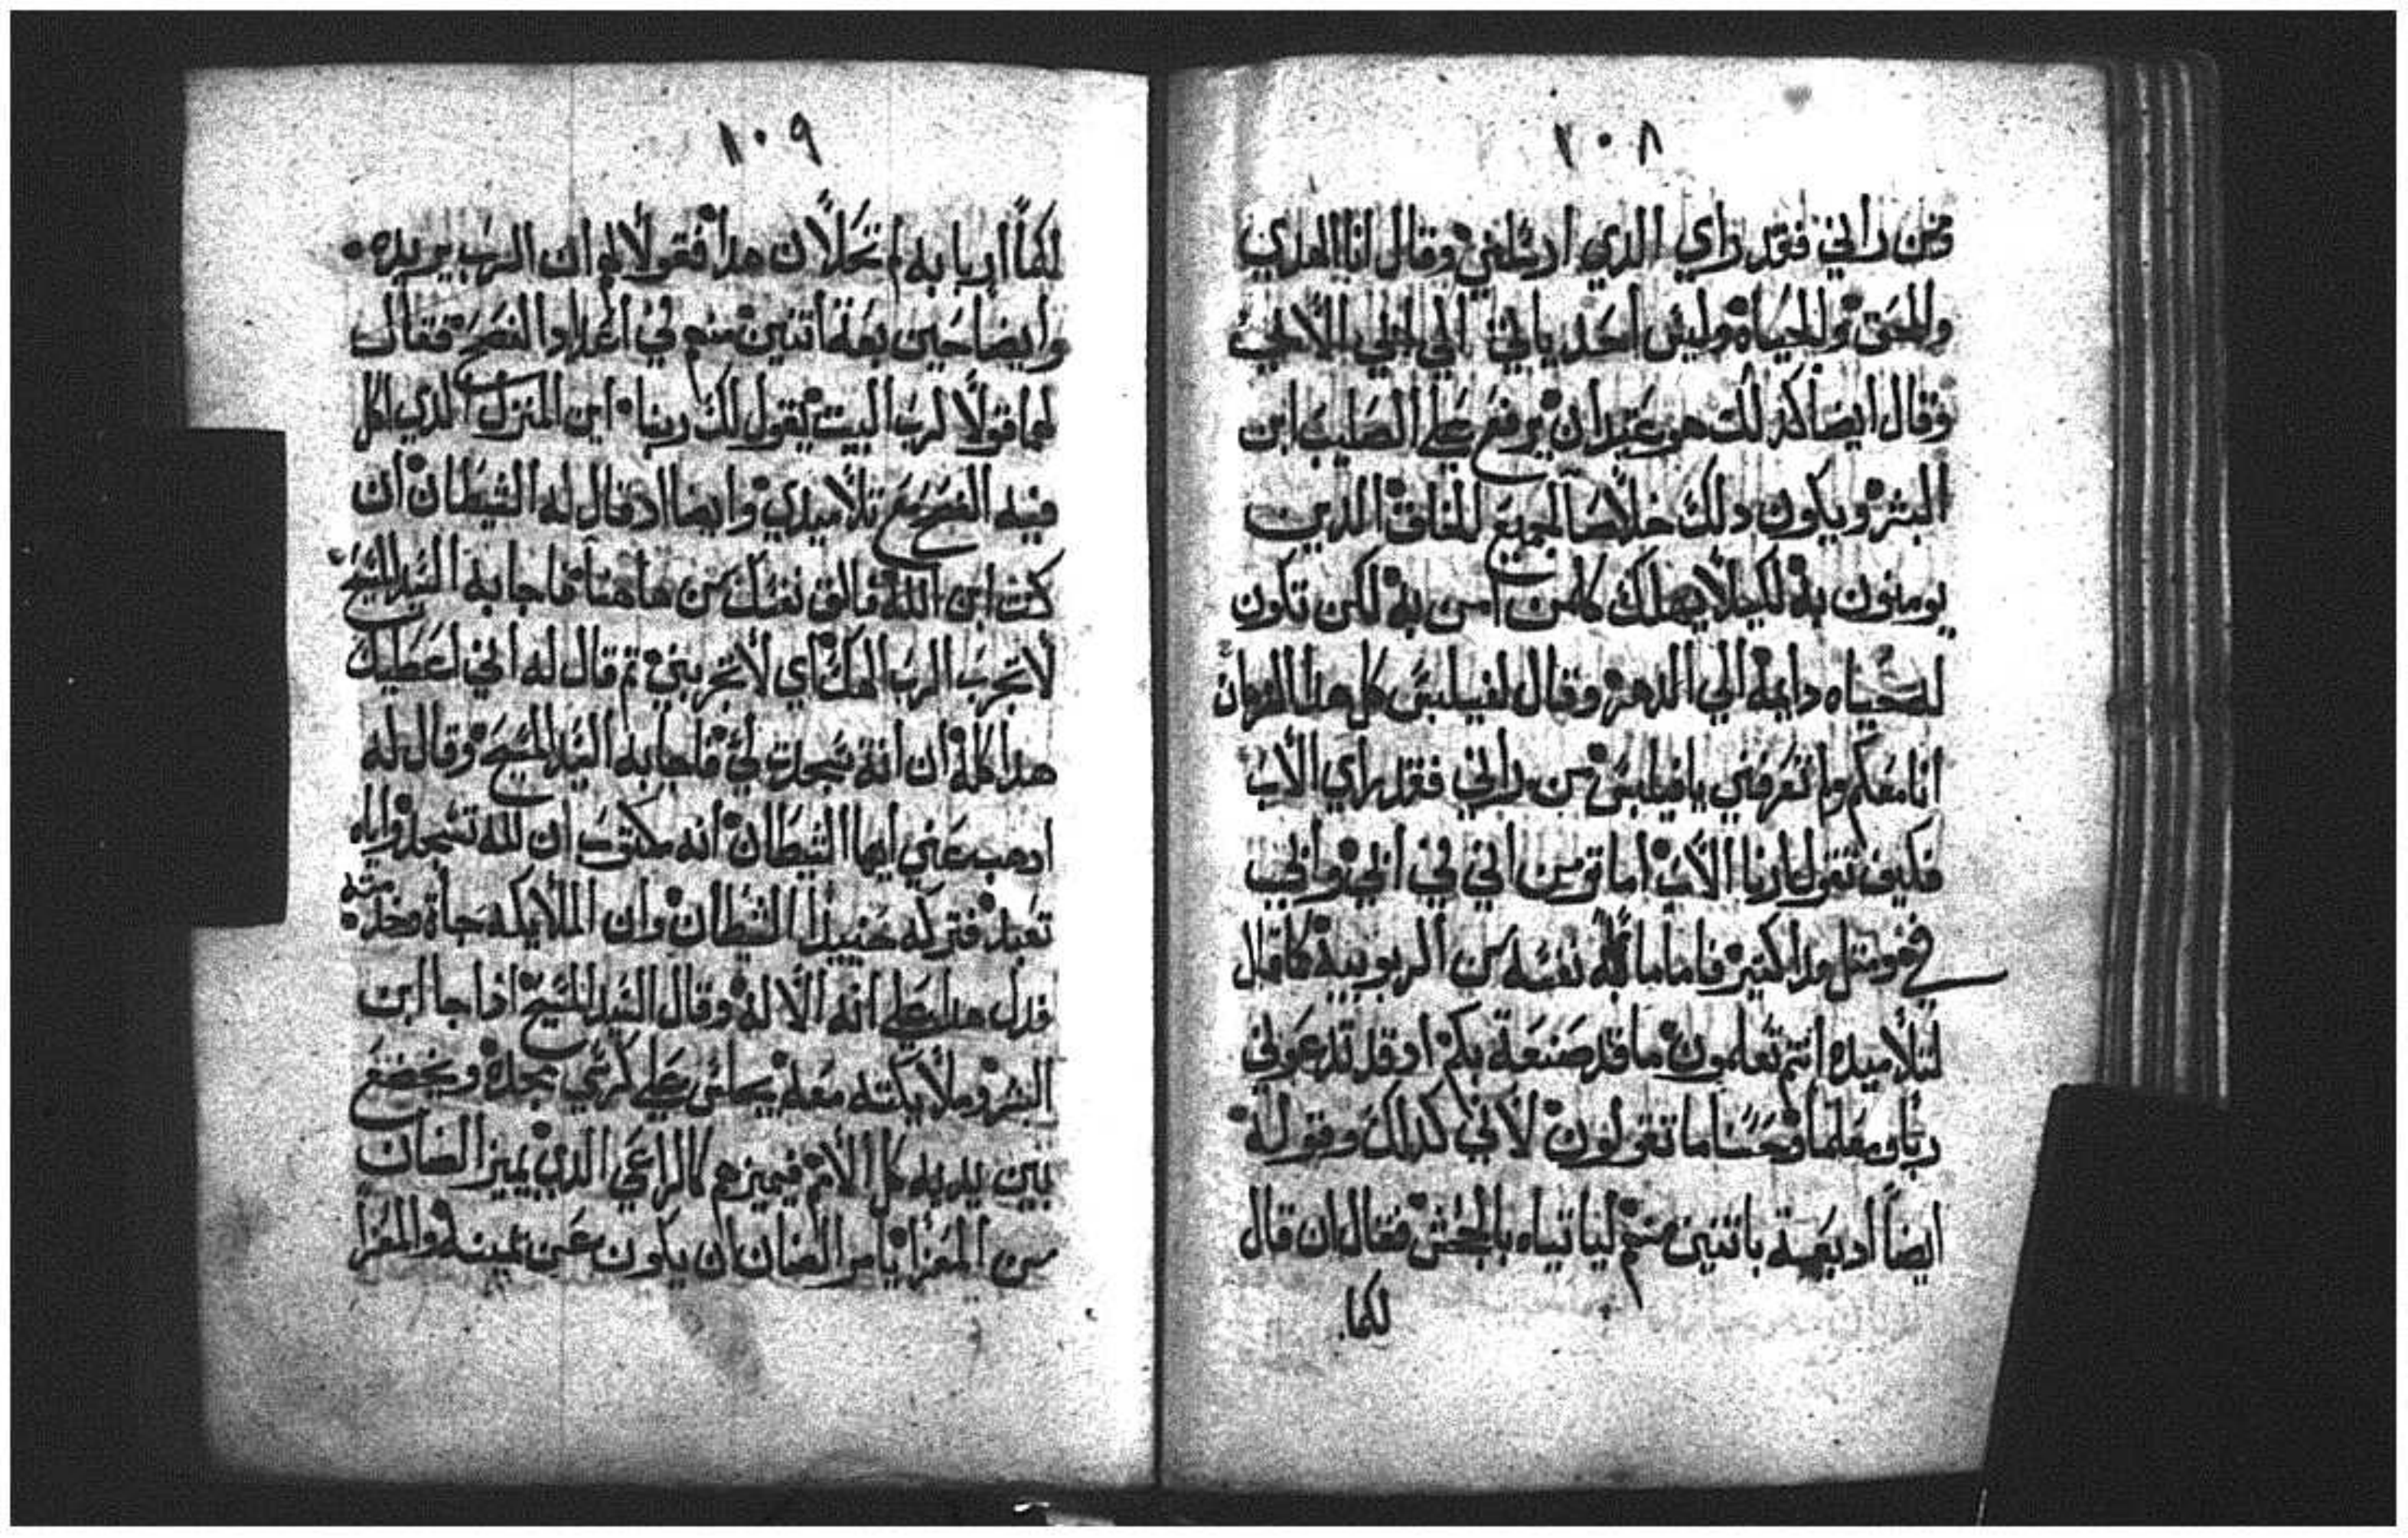 ١٠٨
ومن راني فقد راي الدي ارسلني وقال انا الهدي
والحق والحياه وليس احد ياتي الي ابي الا بي
وقال ايضا كدلك هو عتيد ان يرفع علي الصليب ابن
البشر ويكون دلك خلاصا لجميع الدين
يومنون به لكيلا يهلك كلمن امن به لكن تكون
له حياه دايمة الي الدهر وقال لفيلبس كل هدا الزمان
انا معكم ولم تعرفني يا فيلبس من راني فقد راي الاب
فكيف تقول ارنا الاب اما تومن اني في ابي وابي
في ومثل هدا كتير فاما ما نفسه من الربوبية كما قال
لتلاميده انتم تعلمون ما قد صنعة بكم اد قد تدعوني
ربا ومعلما وحسنا ما تقولون لاني كدلك وقوله
ايضا اد بعت باتنين منهم لياتياه بالجحش فقال ان قال
لكما
١٠٩
لكما اربابه لم تحلان هدا فقولا لهم ان الرب يريده
وايضا حين بعت اتنين منهم في اعداد الفصح فقال
لهما قولا لرب البيت يقول لك ربنا اين المنزل الدي اكل
فيه الفصح مع تلاميدي وايضا اد قال له الشيطان ان
كنت ابن الله فالق نفسك من هاهنا فاجابه السيد المسيح
لا تجرب الرب الهك اي لا تجربني تم قال له اني اعطيك
هدا كله ان انة سجدت لي فاجابه السيد المسيح وقال له
ادهب عني ايها الشيطان انه مكتوب ان لله تسجد واياه
تعبد فتركه حينيد الشيطان وان الملايكه جاة وخدمته
فدل هدا علي انه الاله وقال السيد المسيح ادا جا ابن
البشر وملايكته معه يجلس علي كرسي مجده ويخضع
بين يديه كل الامم فيميزهم كالراعي الدي يميز الضان
من المعزا يامر الضان ان يكون عن يمينه والمعزا